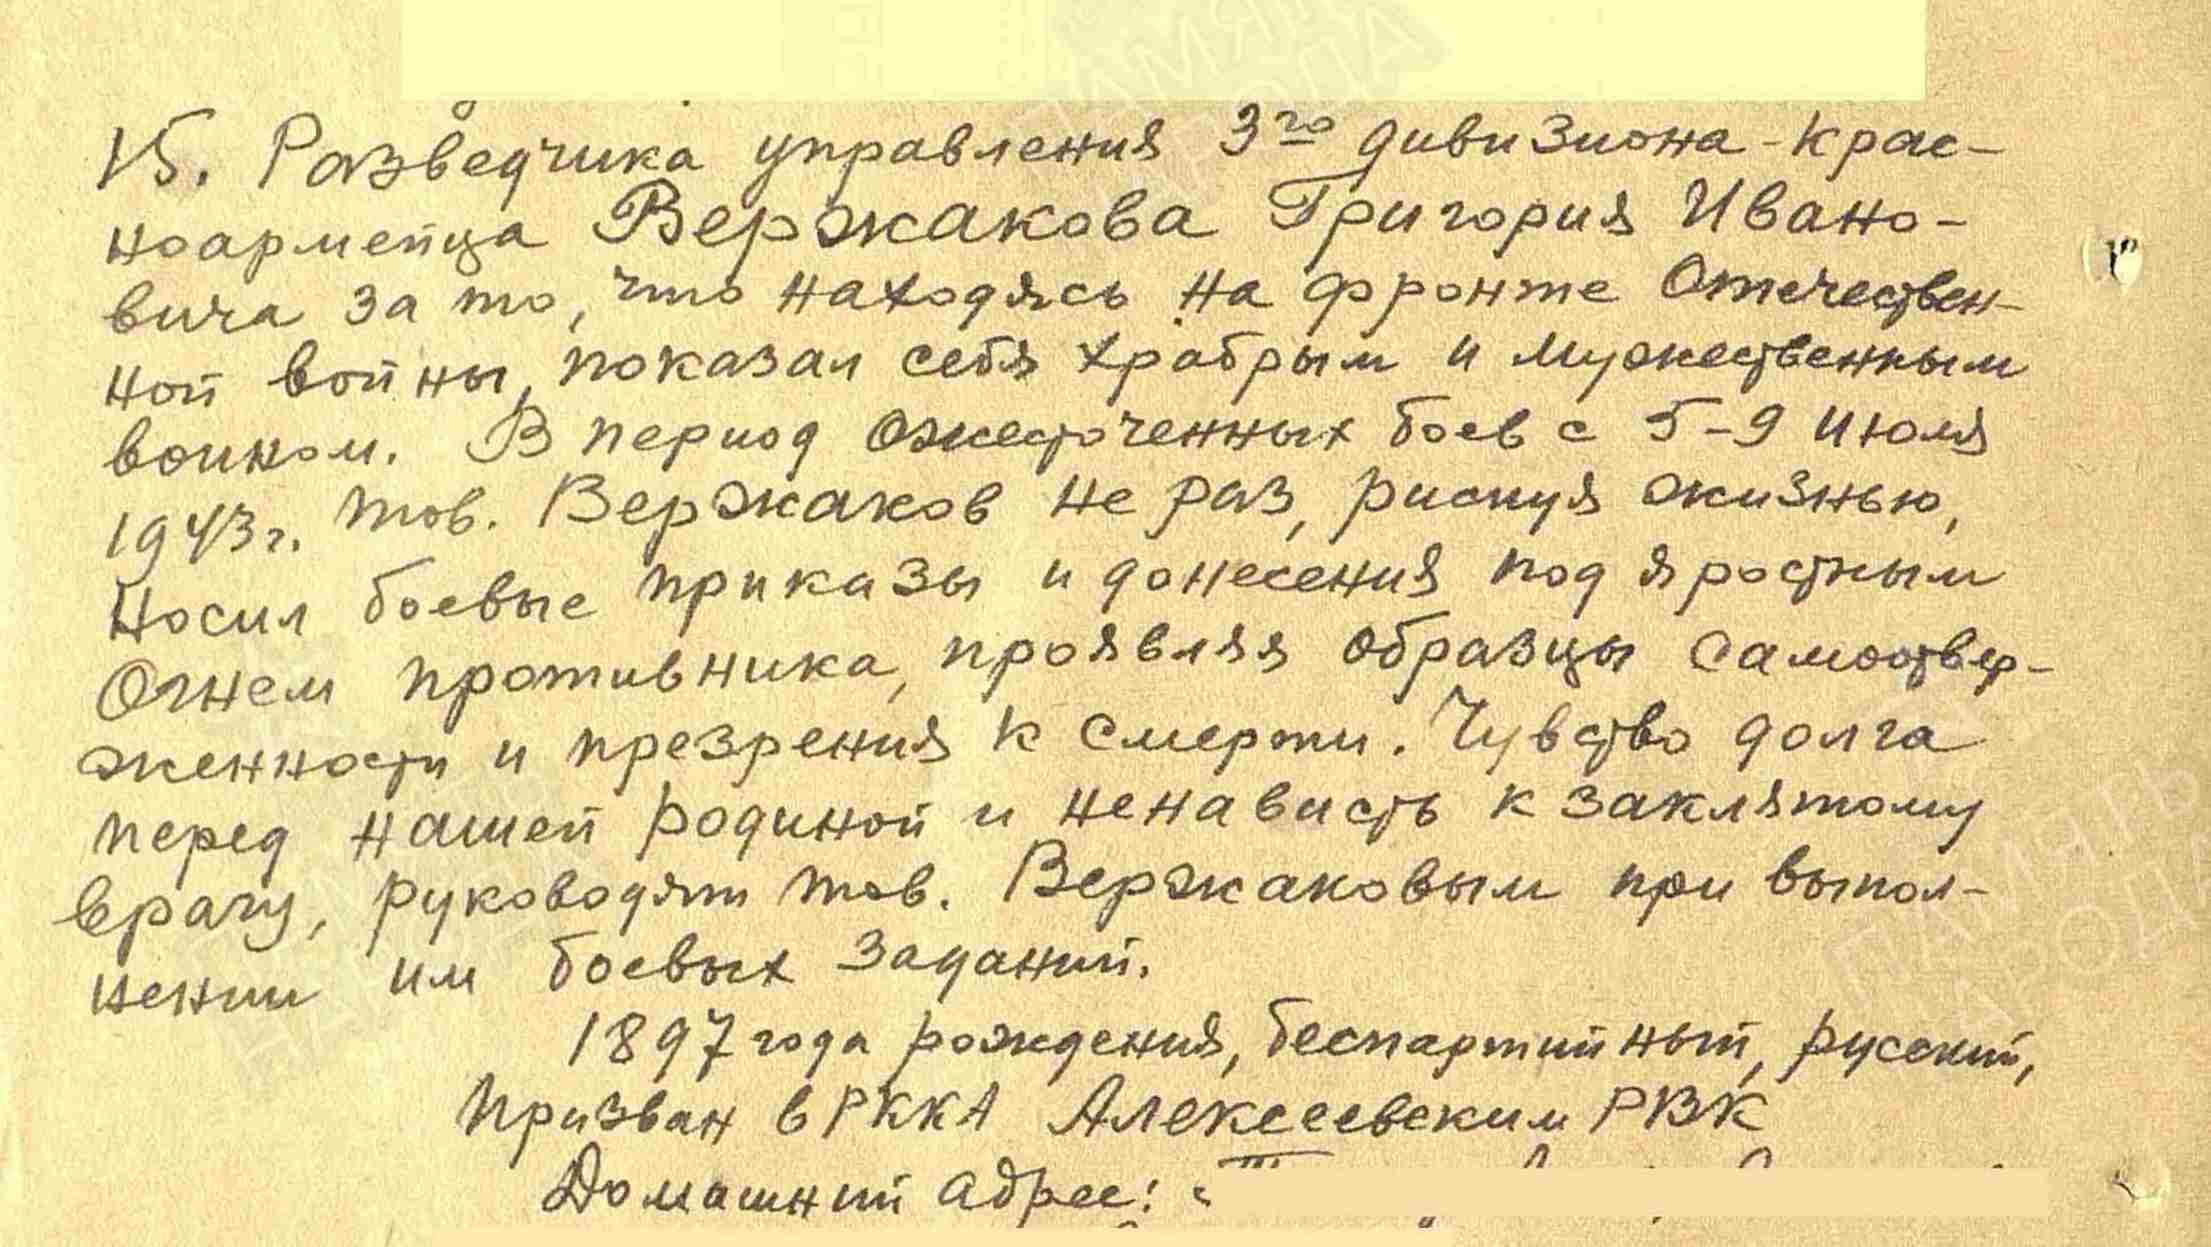 15. Разведчика управления 3го дивизиона - крас-
ноармейца Вержакова Григория Ивано-
вича за то, что находясь на фронте Отечествен-
ной войны, показал себя храбрым и мужественным
воином. В период ожесточенных боев с 5-9 июля
1943 г. тов. Вержаков не раз, рискуя жизнью,
носил боевые приказы и донесения под яростным
огнем противника, проявляя образцы самоотвер-
женности и презрения к смерти. Чувство долга
перед нашей родиной и ненависть к заклятому
врагу, руководят тов. Вержаковым при выпол-
нении им боевых заданий.
1897 года рождения, беспартийный, русский,
призван в РККА Алексеевским РВК
Домашний адрес:
ПАМЯТЬ
НАРОДА